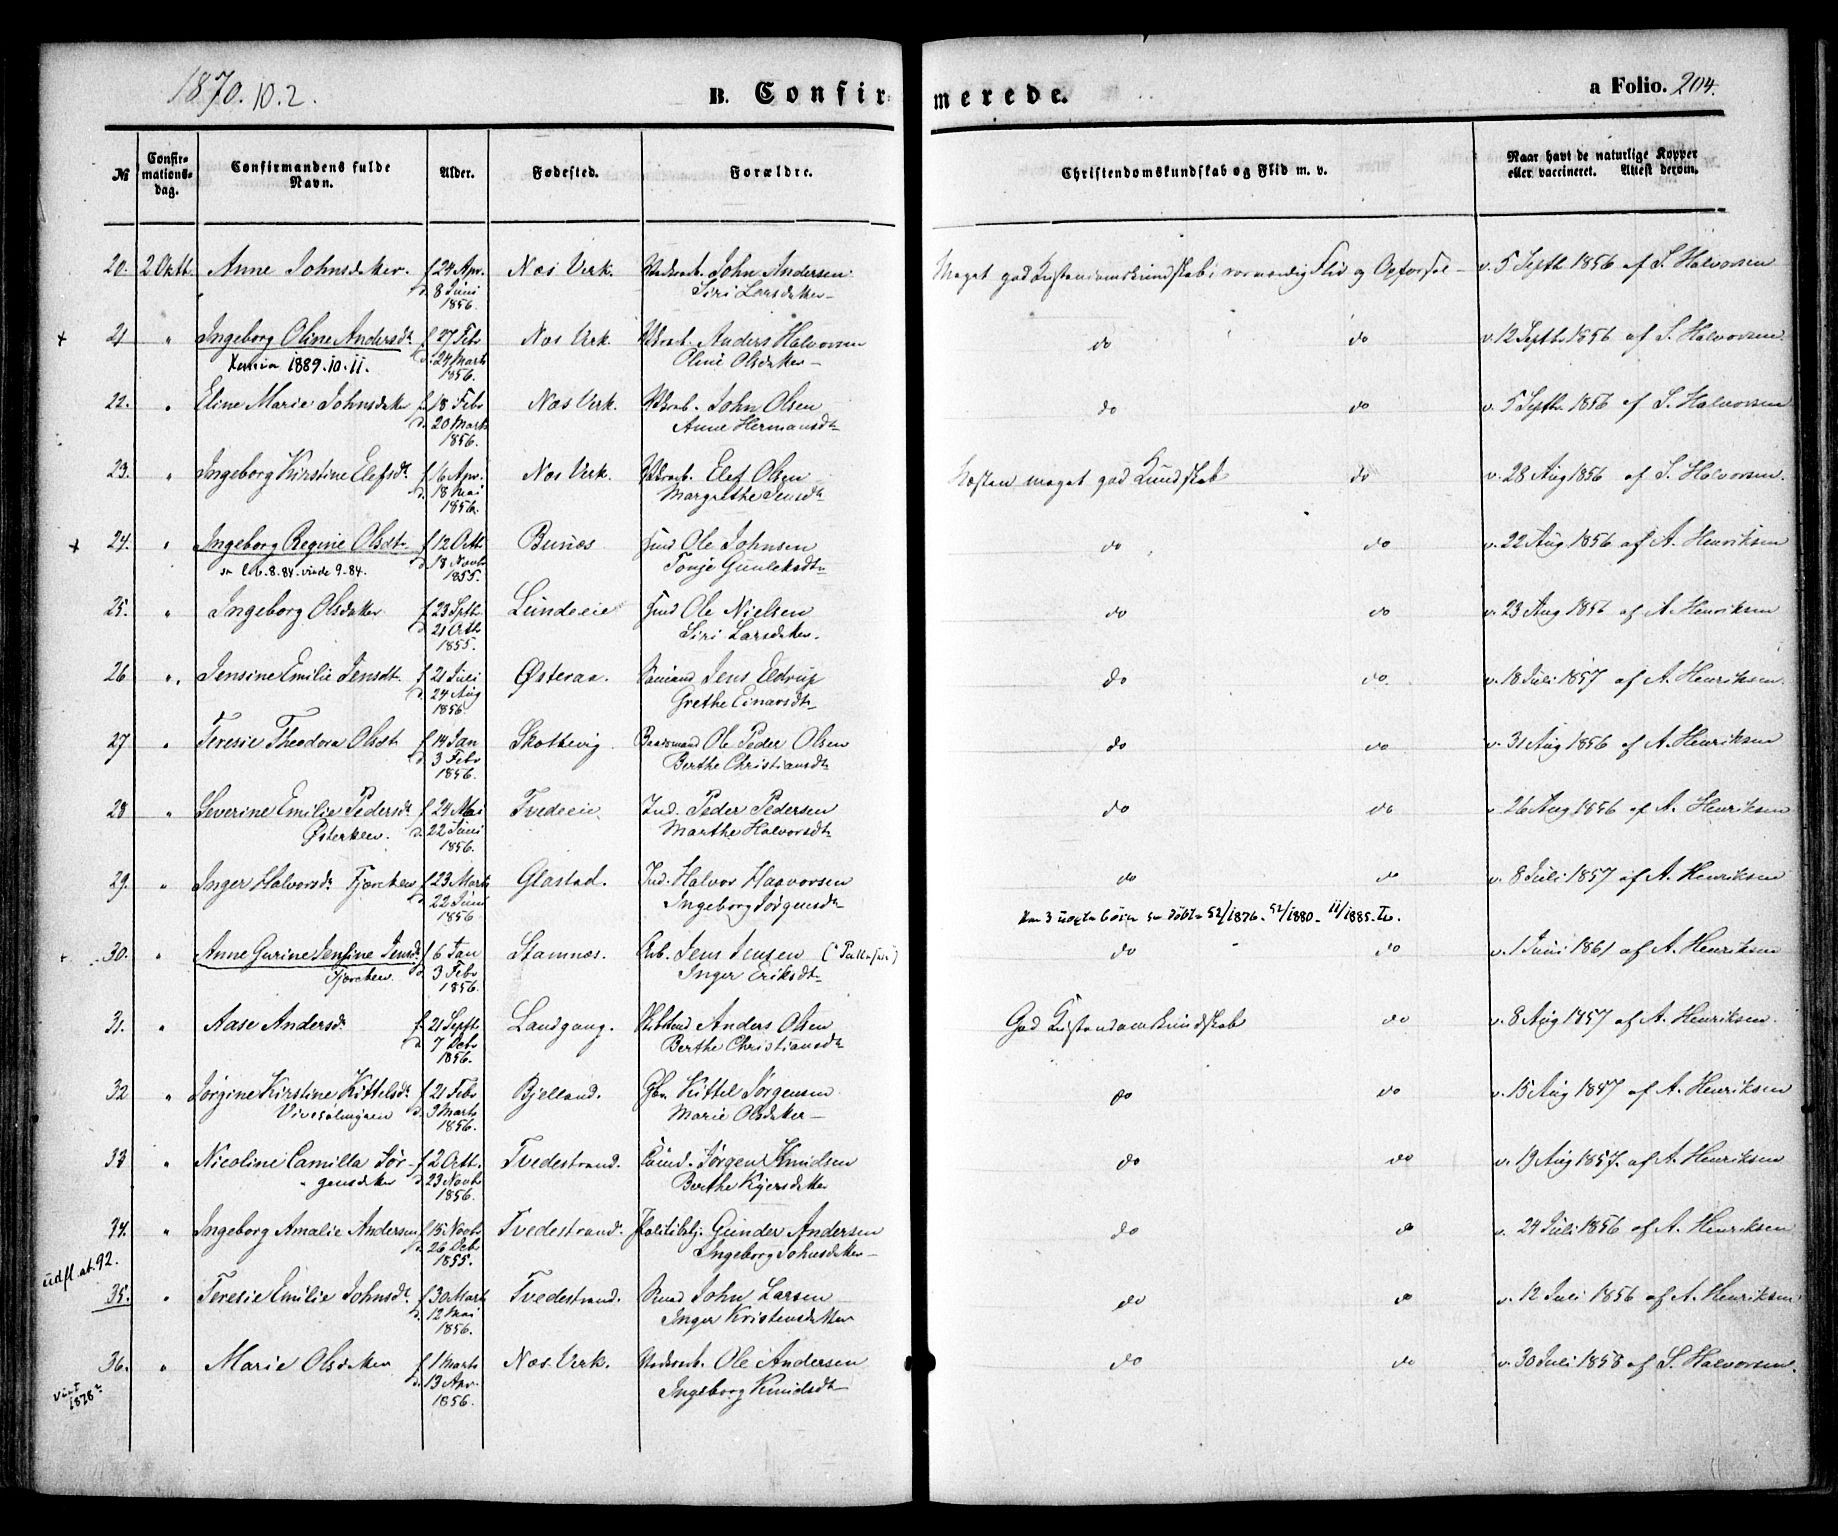 1870. 10. 2.
B. Confirmerede.
a Folio. 204.
№ Confirmationsdag. Confirmandens fulde Navn. Alder. Fødested. Forældre. Christendomskundskab og Flid m. v. Naar havt de naturlige Kopper eller vaccineret. Attest derom.
20. 2 Oktb. Anne Johnsdatter. f 24 Apr. Næs Verk. John Andersen Meget god Kristendomskundskab, Flid og Opførsel v. 5 Septb 1856 af S. Halvorsen
d. 8 Juni Siri Larsdatter
1856.
+ 21 " Ingeborg Oline Andersdt f 27 Feb Næs Verk. Anders Halvorsen do do v. 12 Septb 1856 af S. Halvorsen
1889. 10. 11. d. 24 Marts Oline Olsdatter
1856.
22. " Eline Marie Johnsdatter f 18 Feb Næs Verk. John Olsen do do v. 5 Septb. 1856 af S. Halvorsen
d. 20 Marts Anne Hermansdt
1856.
23. " Ingeborg Kirstine Elefsdt f 6 Apr. Næs Verk. Elef Olsen Næsten meget god Kundskab do v. 28 Aug 1856 af S. Halvorsen.
d. 18 Mai Margrethe Jensdt
1856.
+ 24. " Ingeborg Regine Olsdt f 12 Octb Bunæs Ole Johnsen do do v. 22 Aug 1856 af A. Henriksen
8. 84. 9-84. d. 18 Novb Tonje Gunleksdt
1855.
25. " Ingeborg Olsdatter f 23 Sptb Lundeeie Ole Nielsen do do v. 23 Aug 1856 af A. Henriksen
d. 21 Octb Siri Larsdatter.
1855.
26 " Jensine Emilie Jensdt. f 21 Juli Østeraa. Jens Eldrup do do. v. 18 Juli 1857 af A. Henriksen
d. 24 Aug Grethe Einarsdt
1856
27 " Teresie Theodora Olsdt f 14 Jan Skottevig Ole Peder Olsen do do v. 31 Aug 1856 af A. Henriksen
d. 3 Feb Berthe Christiansdt
1856.
28 " Severine Emilie Pedersdt f 24 Mai Tvedeeie Ind. Peder Pedersen do do v. 26 Aug 1856 af A. Henriksen
Østerklev. d. 22 Juni Marthe Halvorsdt
1856.
29. " Inger Halvorsdt Fjærekleiv f 23 Marts Glastad. Ind. Halvor Haavorsen do do v. 8 Juli 1857 af A. Henriksen
d. 22 Juni Ingeborg Jørgensdt
1856 3 uægte børn 52/1876. 52/1880. 11/1885.
+ 30. " Anne Gurine Jensine Jensdt f 6 Jan Stamnæs. Arb. Jens Jensen do do v. 1 Juni 1861 af A. Henriksen
d. 3 Feb Inger Eriksdt
1856.
31. " Aase Andersdt f 21 Septb Landgang. Anders Olsen God Kristendomskundskab do v. 8 Aug 1857 af A. Henriksen.
d. 7 Decb Berthe Christiansdt
1856.
32 " Jørgine Kirstine Kittelsdt f 21 Feb Bjelland. Kittel Jørgensen do do v. 15 Aug 1857 af A. Henriksen
d. 9 Marts Marie Olsdatter
1856.
33 " Nicoline Camilla Jør- f 2 Octb. Tvedestrand. Jørgen Knudsen do do v. 19 Aug 1857. af A. Henriksen
gensdatter d. 23 Novb Berthe Kjersdatter
1856.
34. " Ingeborg Amalie Andersen f 15 Novb Tvedestrand. Gunder Andersen do do v. 24 Juli 1856 af A. Henriksen
d. 26 Decb Ingeborg Johnsdatter
1855.
udfl. at. 92.
35. " Teresie Emilie Johnsdt f 30 Marts Tvedestrand. John Larsen do do v. 12 Juli 1856 af A. Henriksen
d. 12 Mai Inger Kristensdatter
1856.
36. " Marie Olsdatter f 1 Marts Næs Verk. Ole Andersen do do v. 30 Juli 1858 af S. Halvorsen.
d. 13 Apr. Ingeborg Knudsdt
1878 1856.